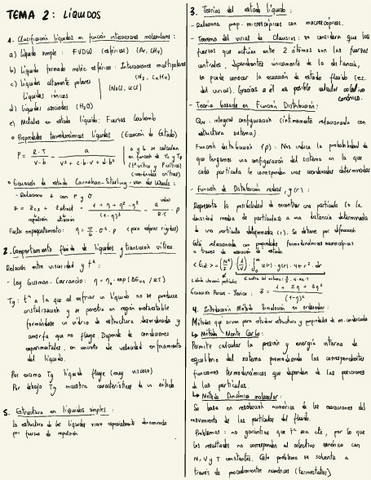 TEMA 2: LÍQUIDOS
1. Clasificación líquidos en función interacciones moleculares:
a) Líquido simple: FVDW (esféricos) (Ar, CH₄)
b) Líquido formado molec esféricas: Interacciones multipolares
(N₂, C₆H₆)
c) Líquidos altamente polares
Líquidos iónicos (NaCl, KCl)
d) Líquidos asociados (H₂O)
e) Metales en estado líquido: Fuerzas Coulomb
Propiedades termodinámicas líquidos (Ecuación de Estado)
P = R·T / V-b - a / V² + c·b·V + d·b²
Ecuación de estado Carnahan-Starling - van der Waals:
- Relaciona z con P y
Factor empaquetamiento: η = π/6 · σ³ · ρ (para esferas rígidas)
2. Comportamiento fluido de líquidos y transición vítrea
Relación entre viscosidad y tª
- Ley Guzman-Carrancio: η = η₀ · exp (ΔEvis / RT)
Tg: tª a la que al enfriar un líquido no se produce
cristalización y se penetra en región metaestable
formándose un vidrio de estructura desordenada y
amorfa que no fluye. Depende de condiciones
experimentales, en concreto de velocidad enfriamiento
del líquido.
Por encima Tg líquido fluye (muy viscoso)
Por debajo Tg muestra características de un sólido
5. Estructura en líquidos simples:
la estructura de los líquidos viene especialmente determinada
por fuerzas de repulsión
3. Teorías del estado líquido:
- Relacionan prop. microscópicas con macroscópicas.
- Teorema del virial de Clausius: se considera que las
fuerzas que actúan entre 2 átomos son las fuerzas
centrales, dependientes únicamente de la distancia,
se puede conocer la ecuación de estado fluido (ec.
del virial). Gracias a él es posible calcular colectivo
canónico.
- Teoría basada en Función Distribución:
QN: integral configuración (íntimamente relacionada con
estructura sistema).
Función distribución (ρ): Nos indica la probabilidad de
que tengamos una configuración del sistema en la que
cada partícula le corresponden unas coordenadas determinadas
- Función de Distribución radial, g(r):
Representa la posibilidad de encontrar una partícula (o la
densidad media de partículas) a una distancia determinada
de una partícula determinada (r). Se obtiene por difracción
Está relacionada con propiedades termodinámicas macroscópicas
a través de ecuación de estado.
Ecuación Percus - Yevick: Z = 1 + 2η + 3η² / (1-η)²
4. Introducción Métodos Simulación en ordenador:
Métodos que sirven para estudiar estructura y propiedades de mat condensada
Método Monte Carlo:
Permite calcular la presión y energía interna de
equilibrio del sistema promediando las correspondientes
funciones termodinámicas que dependan de las posiciones
de las partículas.
Método Dinámica molecular:
Se basa en resolución numérica de las ecuaciones del
movimiento de las partículas del fluido.
Problemas: no garantiza que tª sea cte, por lo que
los resultados no corresponden al colectivo canónico con
N, V y T constantes. Este problema se solventa a
través de procedimientos numéricos (termostatos)